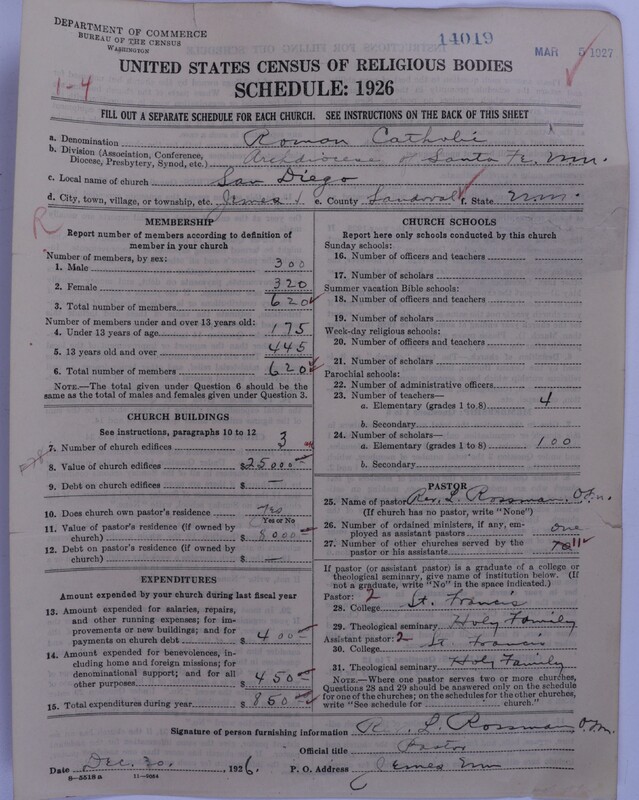 DEPARTMENT OF COMMERCE
BUREAU OF THE CENSUS
WASHINGTON
14019
MAR 5 1927
UNITED STATES CENSUS OF RELIGIOUS BODIES
SCHEDULE: 1926
1-4
FILL OUT A SEPARATE SCHEDULE FOR EACH CHURCH. SEE INSTRUCTIONS ON THE BACK OF THIS SHEET
a. Denomination Roman Catholic
b. Division (Association, Conference, Diocese, Presbytery, Synod, etc.) Archdiocese of Santa Fe, N.M.
c. Local name of church San Diego
d. City, town, village, or township, etc. Jemez e. County Sandoval f. State N.M.
R
MEMBERSHIP
Report number of members according to definition of member in your church
Number of members, by sex:
1. Male 300
2. Female 320
3. Total number of members 620
Number of members under and over 13 years old:
4. Under 13 years of age 175
5. 13 years old and over 445
6. Total number of members 620
NOTE.—The total given under Question 6 should be the same as the total of males and females given under Question 3.
CHURCH BUILDINGS
See instructions, paragraphs 10 to 12
7. Number of church edifices 3
8. Value of church edifices $25000—
9. Debt on church edifices $ —
10. Does church own pastor's residence? Yes
Yes or No
11. Value of pastor's residence (if owned by church) $ 8000—
12. Debt on pastor's residence (if owned by church) $ —
EXPENDITURES
Amount expended by your church during last fiscal year
13. Amount expended for salaries, repairs, and other running expenses; for improvements or new buildings; and for payments on church debt $ 400—
14. Amount expended for benevolences, including home and foreign missions; for denominational support; and for all other purposes $ 450—
15. Total expenditures during year $ 850—
CHURCH SCHOOLS
Report here only schools conducted by this church
Sunday schools:
16. Number of officers and teachers
17. Number of scholars
Summer vacation Bible schools:
18. Number of officers and teachers
19. Number of scholars
Week-day religious schools:
20. Number of officers and teachers
21. Number of scholars
Parochial schools:
22. Number of administrative officers
23. Number of teachers—
a. Elementary (grades 1 to 8) 4
b. Secondary
24. Number of scholars—
a. Elementary (grades 1 to 8) 100
b. Secondary
PASTOR
25. Name of pastor Rev. L. Rossman, O.F.M.
(If church has no pastor, write "None")
26. Number of ordained ministers, if any, employed as assistant pastors one
27. Number of other churches served by the pastor or his assistants 11
If pastor (or assistant pastor) is a graduate of a college or theological seminary, give name of institution below. (If not a graduate, write "No" in the space indicated.)
Pastor: 2
28. College St. Francis
29. Theological seminary Holy Family
Assistant pastor: 2
30. College St. Francis
31. Theological seminary Holy Family
NOTE.—Where one pastor serves two or more churches, Questions 28 and 29 should be answered only on the schedule for one of the churches; on the schedules for the other churches, write "See schedule for church."
Signature of person furnishing information L. Rossman O.F.M.
Official title Pastor
Date Dec. 30, 1926. P. O. Address Jemez N.M.
8-5518 a 11-9264